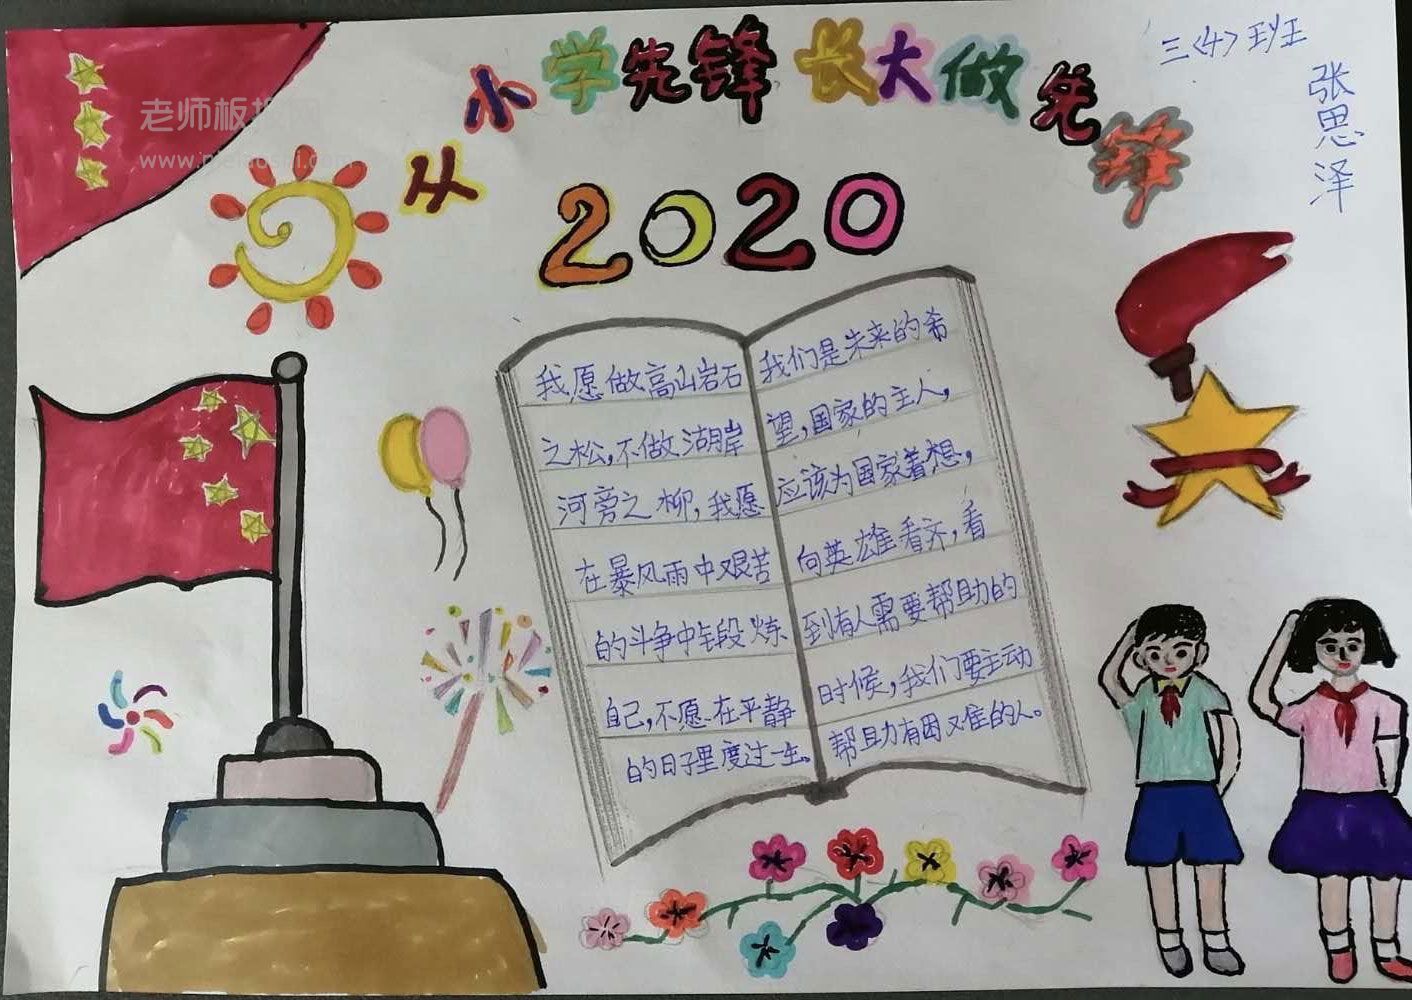 从小学先锋 长大做先锋
三〈4〉班
张思泽
2020
我愿做高山岩石
之松，不做湖岸
河旁之柳，我愿
在暴风雨中艰苦
的斗争中锻炼
自己，不愿在平静
的日子里度过一生。
我们是未来的希
望，国家的主人，
应该为国家着想，
向英雄看齐，看
到有人需要帮助的
时候，我们要主动
帮助有困难的人。
老师板报网